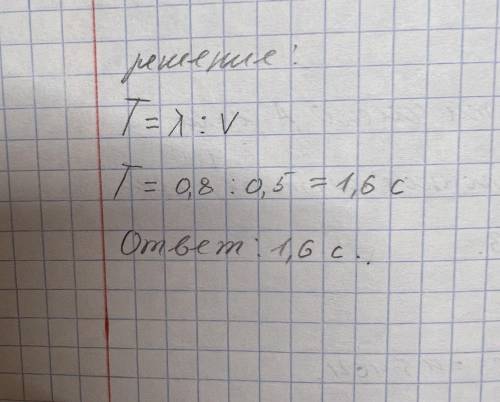 решение:
T = λ : v
T = 0,8 : 0,5 = 1,6 с
Ответ: 1,6 с..